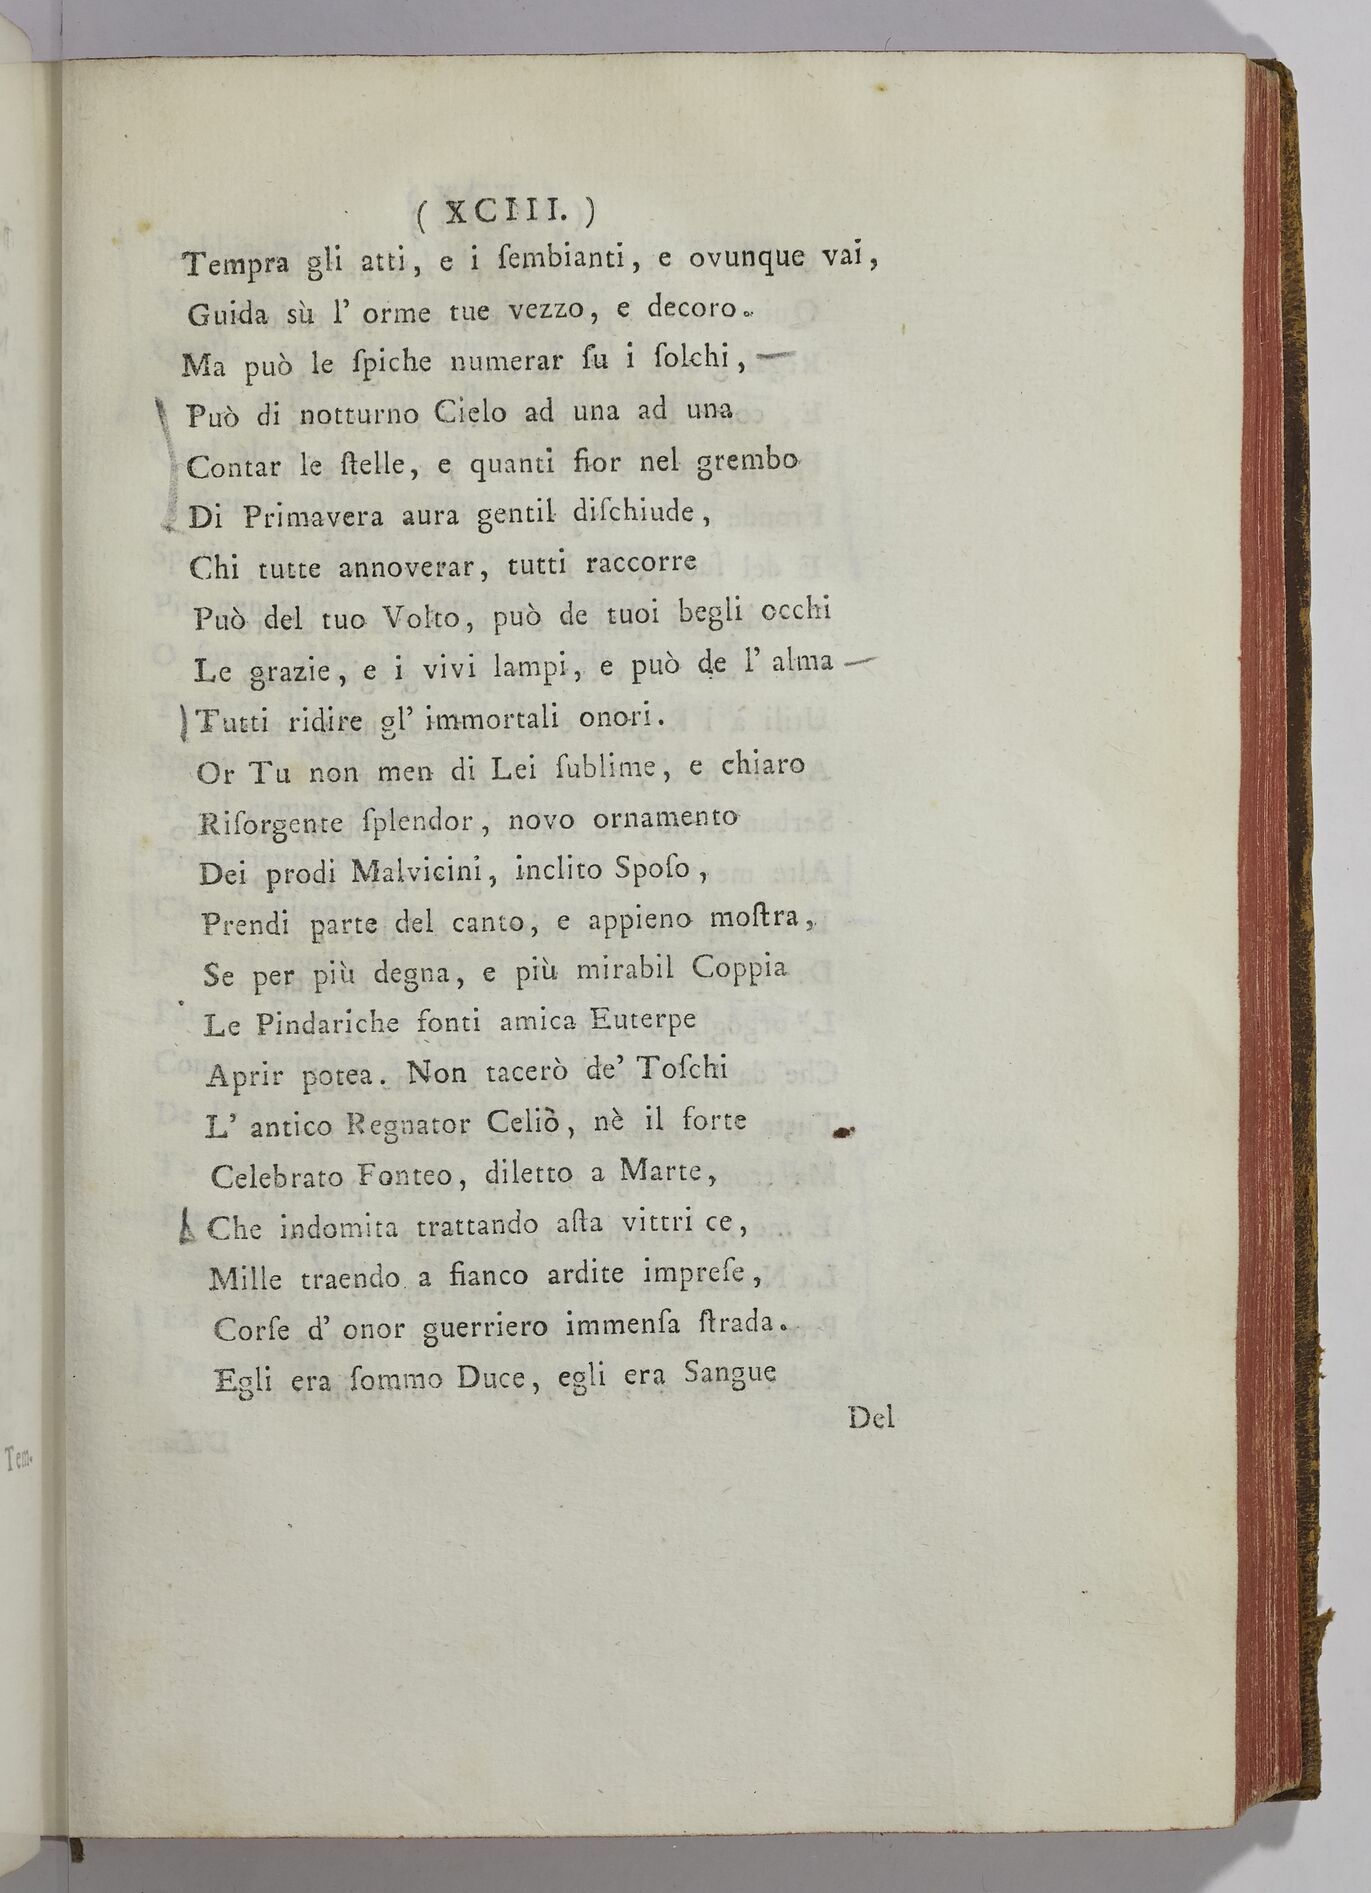 ( XCIII. )
Tempra gli atti, e i ſembianti, e ovunque vai,
Guida sù l' orme tue vezzo, e decoro.
Ma può le ſpiche numerar ſu i ſolchi,
Può di notturno Cielo ad una ad una
Contar le ſtelle, e quanti fior nel grembo
Di Primavera aura gentil diſchiude,
Chi tutte annoverar, tutti raccorre
Può del tuo Volto, può de tuoi begli occhi
Le grazie, e i vivi lampi, e può de l' alma
Tutti ridire gl' immortali onori.
Or Tu non men di Lei ſublime, e chiaro
Riſorgente ſplendor, novo ornamento
Dei prodi Malvicini, inclito Spoſo,
Prendi parte del canto, e appieno moſtra,
Se per più degna, e più mirabil Coppia
Le Pindariche fonti amica Euterpe
Aprir potea. Non tacerò de' Toſchi
L' antico Regnator Celiò, nè il forte
Celebrato Fonteo, diletto a Marte,
Che indomita trattando aſta vittri ce,
Mille traendo a fianco ardite impreſe,
Corſe d' onor guerriero immenſa ſtrada.
Egli era ſommo Duce, egli era Sangue
Del
Tem-